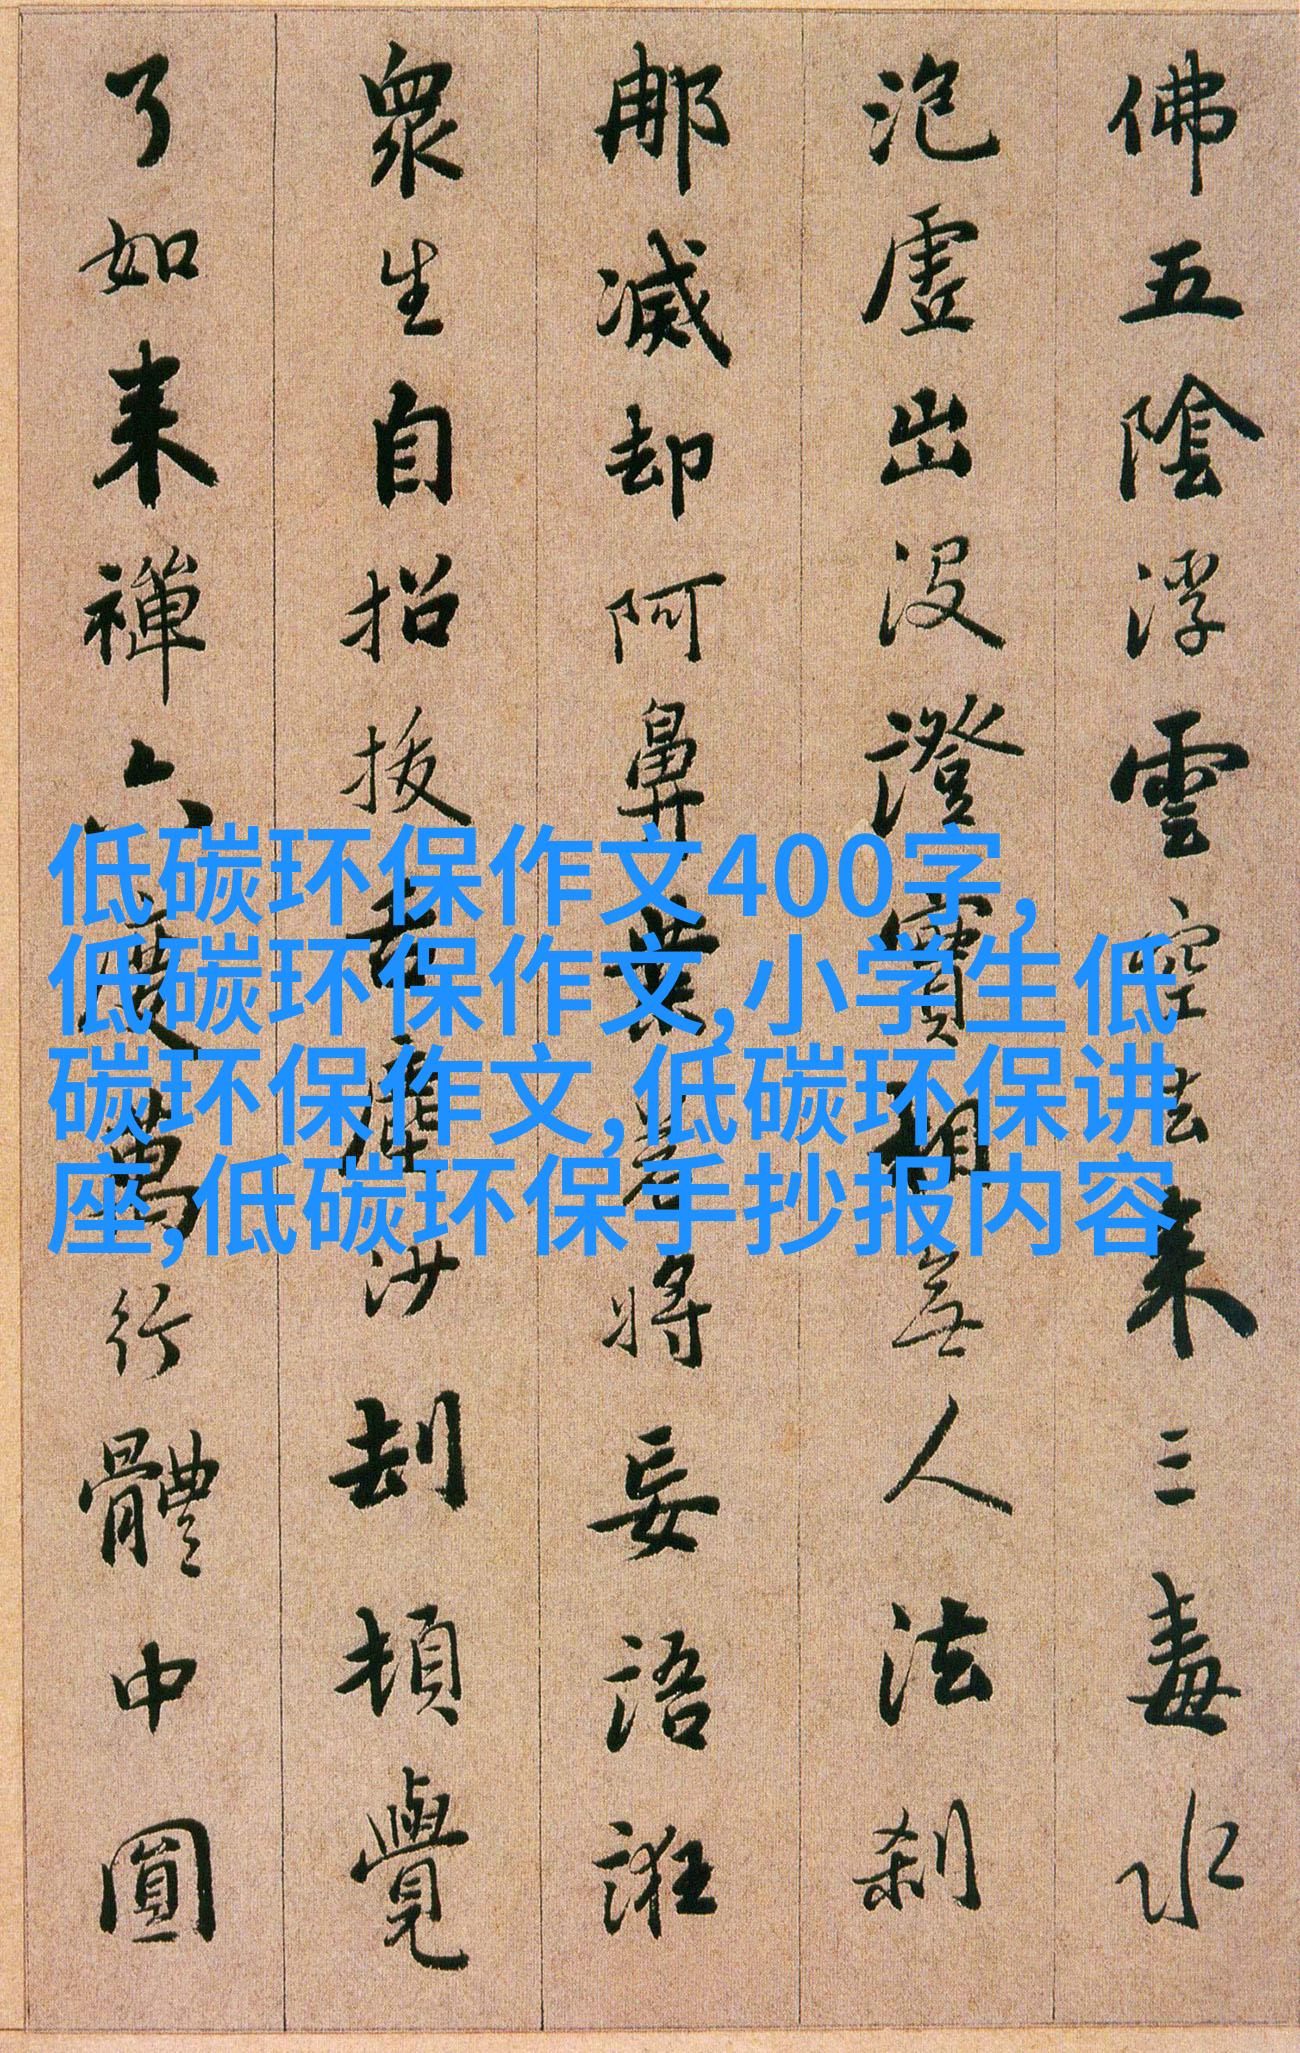 佛五陰浮雲空去来三毒水
泡虛出没證實相無人法刹
那滅却阿鼻業若將妄語誑
衆生自招拔舌塵沙劫頓覺
了如来禪六度萬行體中圓
低碳环保作文400字,
低碳环保作文,小学生低
碳环保作文,低碳环保讲
座,低碳环保手抄报内容